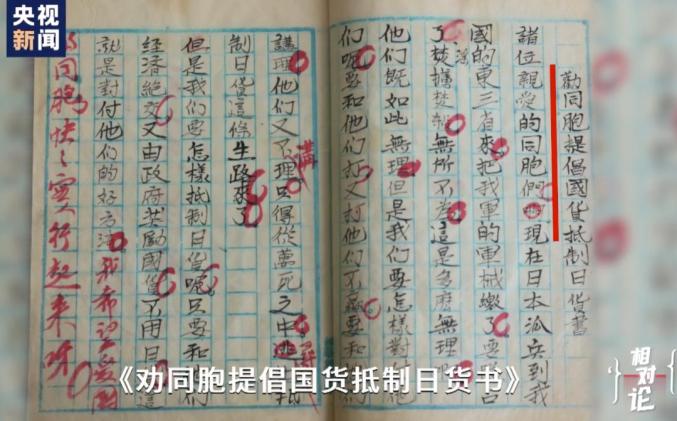 央视新闻
勸同胞提倡國貨抵制日貨書
諸位親愛的同胞們現在日本派兵到我
國的東三省來把我軍的軍械繳了要占
了焚擄焚劫無所不为這是多麽無理
他们既如此無理但是我们要怎樣對他
们呢要和他们打又打他们不贏要和
講理他们又不理只得從萬死之中尋抵
制日貨這條生路來了
但是我们要怎樣抵制日貨呢只要和们
经濟絕交又由政府獎勵國貨不用日這
就是對付他們的好方法我希望
同胞快々實行起来呀
《劝同胞提倡国货抵制日货书》
相对论